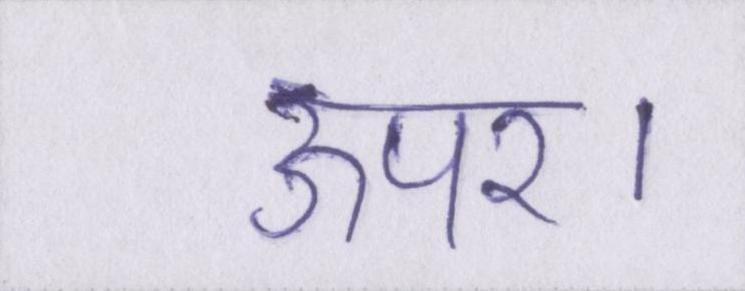 ऊपर।